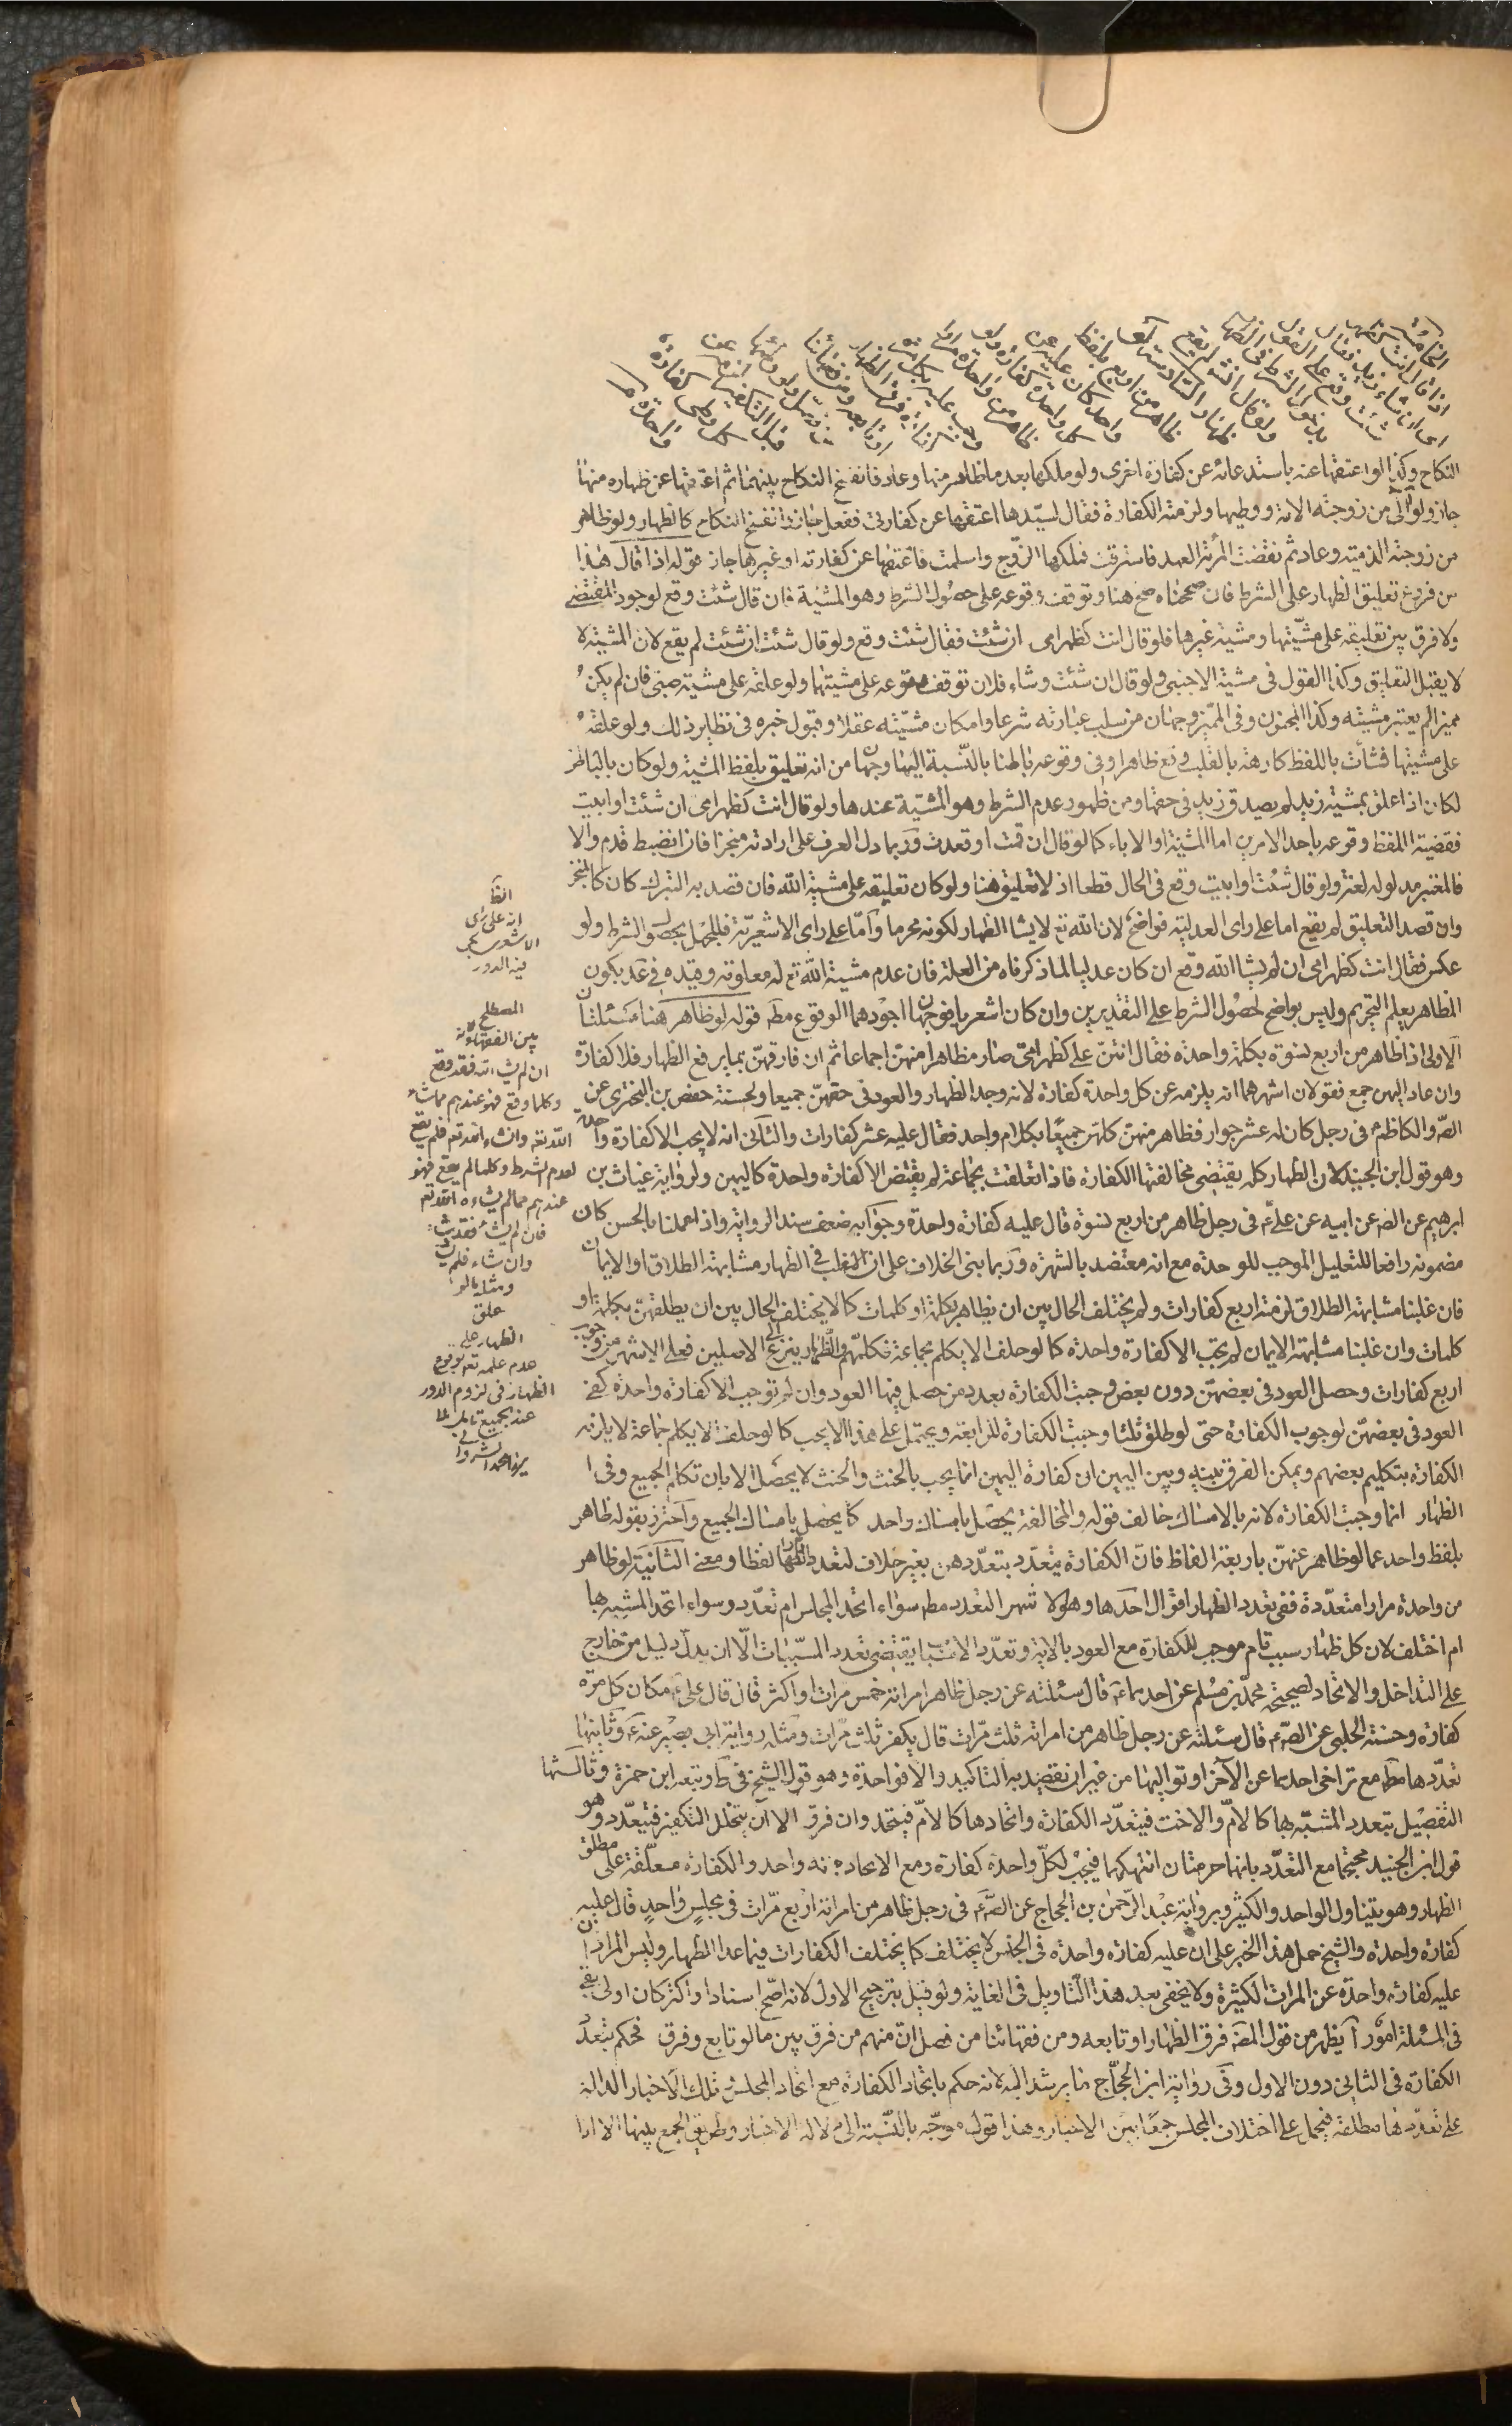 الخامسة
اذا قال انت كظهر
امى ان شاء زيد فقال
شئت وقع على القول
بدخول الشرط فى الظهار
ولو قال ان شاء الله لم يقع
ظهار السادسة لو
ظاهر من اربع بلفظ
واحد كان عليه عن
كل واحدة كفارة ولو
ظاهر من واحدة مرارا
وجب عليه بكل مرة
كفارة فرق الظهار
او تابعه ومن فقهائنا
من فصل ولو وطئها
قبل التكفير عن
كل واحدة كفارة
واحدة
النكاح وكذا لو اعتقها عنه باستدعائه عن كفارة اخرى ولو ملكها بعد ما ظاهر منها وعاد فانفسخ النكاح بينهما ثم اعتقها عن ظهاره منها
جاز ولو آلى من زوجته الامة ووطيها ولزمته الكفارة فقال لسيّدها اعتقها عن كفارتى ففعل جاز وانفسخ النكاح كالظهار ولو ظاهر
من زوجته الذمية وعاد ثم نقضت المرئة العهد فاسترقت فملكها الزوج واسلمت فاعتقها عن كفارته او غيرها جاز قوله اذا قال هذا
من فروع تعليق الظهار على الشرط فان صححناه صح هنا وتوقف وقوعه على حصول الشرط وهو المشية فان قال شئت وقع لوجود المقتضى
ولا فرق بين تعليقه على مشيّتها ومشية غيرها فلو قال انت كظهر امى ان شئت فقال شئت وقع ولو قال شئت ان شئت لم يقع لان المشية لا
لا يقبل التعليق وكذا القول فى مشية الاجنبى ولو قال ان شئت وشاء فلان توقف وقوعه على مشيتهما ولو علقه على مشية صبى فان لم يكن
مميزا لم يعتبر مشيته وكذا المجنون وفى المميّز وجهان من سلب عبارته شرعا وامكان مشيّته عقلا وقبول خبره فى نظاير ذلك ولو علقه
على مشيتها فشائت باللفظ كارهة بالقلب وقع ظاهرا وفى وقوعه باطنا بالنّسبة اليها وجهان من انه تعليق بلفظ المشية ولو كان بالباطن
لكان اذا علق بمشية زيد لم يصدق زيد فى حقها ومن ظهور عدم الشرط وهو المشيّة عندها ولو قال انت كظهر امى ان شئت او ابيت
فقضية اللفظ وقوعه باحد الامرين اما المشية او الاباء كما لو قال ان قمت او قعدت وربما دل العرف على ارادته منجزا فان انضبط قدم والا
فالمعتبر مدلوله لغة ولو قال شئت او ابيت وقع فى الحال قطعا اذ لا تعليق هنا ولو كان تعليقه على مشية الله فان قصد به التبرك كان كالمنجز
وان قصد التعليق لم يقع اما على راى العدلية فواضح لان الله تع لا يشا الظهار لكونه محرما وامّا على راى الاشعريّة فللجهل بحصول الشرط ولو
عكس فقال انت كظهر امى ان لم يشا الله وقع ان كان عدليا لما ذكرناه من العلة فان عدم مشية الله تع له معلومة وقيده فى عد بكون
المظاهر يعلم التحريم وليس بواضح لحصول الشرط على التقديرين وان كان اشعريا فوجهان اجودهما الوقوع مطه قوله لو ظاهر هنا مسئلتان
الاولى اذا ظاهر من اربع نسوة بكلمة واحدة فقال انتنّ على كظهر امى صار مظاهرا منهن اجماعا ثم ان فارقهن بما يرفع الظهار فلا كفارة
وان عاد اليهن جمع فقولان اشهرهما انه يلزمه عن كل واحدة كفارة لانه وجد الظهار والعود فى حقهنّ جميعا ولحسنة حفص بن البخترى عن
الصّ والكاظم فى رجل كان له عشر جوار فظاهر منهن كلهن جميعا بكلام واحد فقال عليه عشر كفارات والثانى انه لا يجب الا كفارة واحدة
وهو قول ابن الجنيد لان الظهار كله يقتضى مخالفتها الكفارة فاذا تعلقت بجماعة لم يقتض الا كفارة واحدة كاليمين ولرواية غياث بن
ابرهيم عن الصّ عن ابيه عن علىّ فى رجل ظاهر من اربع نسوة قال عليه كفارة واحدة وجوابه ضعف سند الرواية واذ اعملنا بالحسن كان
مضمونه رافعا للتعليل الموجب للوحدة مع انه معتضد بالشهرة وربما بنى الخلاف على ان المغلب فى الظهار مشابهة الطلاق او الايمان
فان غلبنا مشابهة الطلاق لزمته اربع كفارات ولم يختلف الحال بين ان يظاهر بكلمة او كلمات كما لا يختلف الحال بين ان يطلقهنّ بكلمة او
كلمات وان غلبنا مشابهة الايمان لم تجب الا كفارة واحدة كما لو حلف الا يكلم جماعة فكلمهم والظهار ينزع الى الاصلين فعلى الاشهر من وجوب
اربع كفارات وحصل العود فى بعضهنّ دون بعض وجبت الكفارة بعدد من حصل فيها العود وان لم توجب الا كفارة واحدة كفى
العود فى بعضهن لوجوب الكفارة حتى لو طلق ثلثا وجبت الكفارة للرابعة ويحتمل على هذا الا يجب كما لو حلف لا يكلم جماعة لا يلزمه
الكفارة بتكليم بعضهم ويمكن الفرق بينه وبين اليمين ان كفارة اليمين انما يجب بالحنث والحنث لا يحصل الا بان تكلم الجميع وفى ا
الظهار انما وجبت الكفارة لانه بالامساك خالف قوله والمخالفة يحصل بامساك واحد كما يحصل بامساك الجميع واحترز بقوله ظاهر
بلفظ واحد عما لو ظاهر عنهنّ باربعة الفاظ فان الكفارة يتعدد بتعدّدهن بغير خلاف لتعدد الظهار لفظا ومعنى الثانية لو ظاهر
من واحدة مرارا متعدّدة ففى تعدد الظهار اقوال احدها وهو الاشهر التعدد مطه سواء اتحد المجلس ام تعدّد وسواء اتحد المشبه بها
ام اختلف لان كل ظهار سبب تام موجب للكفارة مع العود بالاية وتعدّد الاسباب يقتضى تعدد المسبّبات الّا ان يدلّ دليل من خارج
على التداخل والاتحاد لصحيحة محمّد بن مسلم عن احدهما قال سئلته عن رجل ظاهر امراته خمس مرات او اكثر قال قال علىّ مكان كل مرّة
كفارة وحسنة الحلبى عن الصّ قال سئلته عن رجل ظاهر من امراته ثلث مرّات قال يكفر ثلث مرّات ومثله رواية ابى بصير عنه وثانيها
تعدّدها مطه مع تراخى احدهما عن الآخر او تواليهما من غير ان يقصد به التاكيد والا فواحدة وهو قول الشيخ فى ط وتبعه ابن حمزة وثالثها
التفصيل بتعدد المشبّه بها كالام والاخت فيتعدّد الكفارة واتحادها كالامّ فيتحد وان فرق الا ان يتخلل التكفير فيتعدّد وهو
قول ابن الجنيد محتجا مع التعدّد بانهما حرمتان انتهكهما فيجب لكلّ واحدة كفارة ومع الاتحاد بانه واحد والكفارة معلّقة على مطلق
الظهار وهو يتناول الواحد والكثير وبرواية عبد الرّحمن بن الحجاج عن الصّ فى رجل ظاهر من امراته اربع مرّات فى مجلس واحد قال عليه
كفارة واحدة والشيخ حمل هذا الخبر على ان عليه كفارة واحدة فى الجنس لا يختلف كما يختلف الكفارات فيما عدا الظهار وليس المراد ان
عليه كفارة واحدة عن المرات الكثيرة ولا يخفى بعد هذا التّاويل فى الغاية ولو قيل بترجيح الاول لانه اصحّ اسنادا واكثر كان اولى بقى
فى المسئلة امور آ يظهر من قول المصّ فرق الظهار او تابعه ومن فقهائنا من فصل انّ منهم من فرق بين ما لو تابع وفرق فحكم بتعدد
الكفارة فى الثانى دون الاول وفى رواية ابن الحجّاج ما يرشد اليه لانه حكم باتحاد الكفارة مع اتحاد المجلس تلك الاخبار الدالة
على تعدّدها مطلقة فيحمل على اختلاف المجلس جمعا بين الاخبار وهذا قول موجّه بالنّسبة الى دلالة الاخبار وطريق الجمع بينها الا اذا
الظ
انه على راى
الاشعرى يجى
فيه الدور
المصطلح
بين الفقهاء لانه
ان لم يشا الله فقد وقع
وكلما وقع فهو عندهم مما شاء
الله تعه وان شاء الله تعه فلم يقع
لعدم الشرط وكلما لم يقع فهو
عندهم مما لم يشاءه الله تعه
فان لم يشا فقد شاء
وان شاء فلم يشا
ومثله ما لو
علق
الظهار على
عدم علمه تعه بوقوع
الظهار فى لزوم الدور
عند الجميع تامل